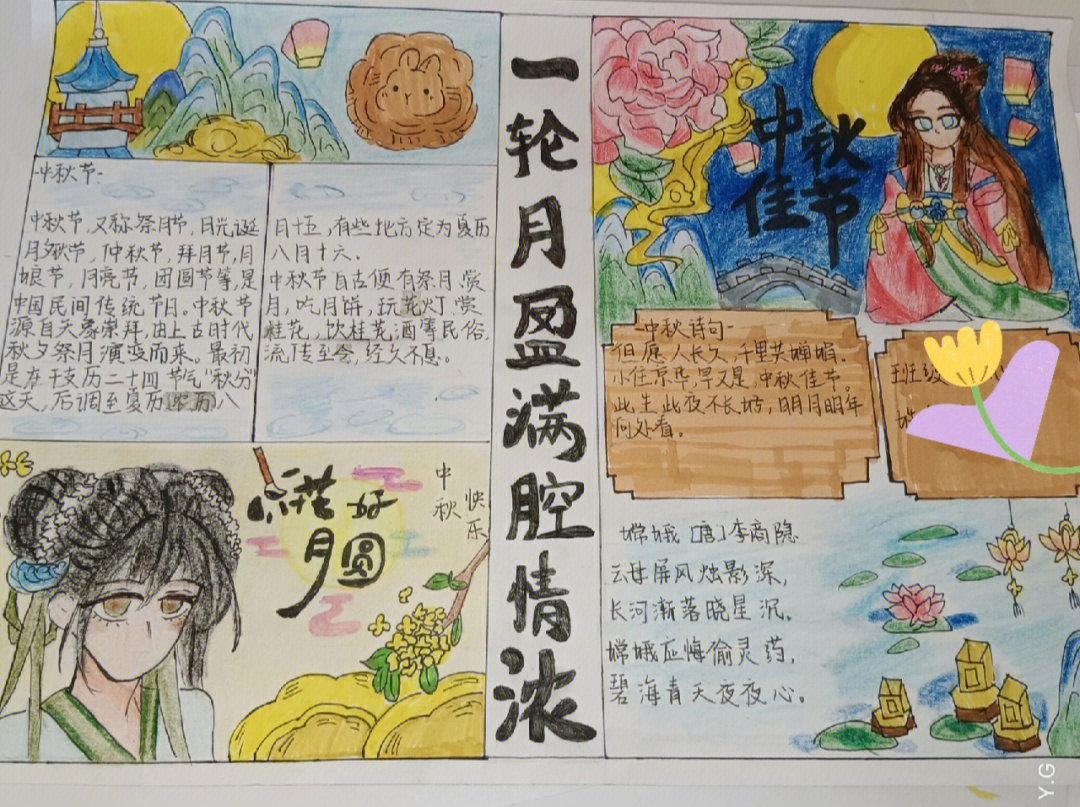 一轮月盈满腔情浓
-中秋节-
中秋节,又称祭月节,月光诞
月夕,秋节,仲秋节,拜月节,月
娘节,月亮节,团圆节等,是
中国民间传统节日。中秋节
源自天象崇拜,由上古时代
秋夕祭月演变而来。最初
是在干支历二十四节气“秋分”
这天,后调至夏历农历八
月十五,有些地方定为夏历
八月十六.
中秋节自古便有祭月,赏
月,吃月饼,玩花灯,赏
桂花,饮桂花酒等民俗,
流传至今,经久不息。
花好
月圆
中秋
快乐
中秋
佳节
-中秋诗句-
但愿人长久,千里共婵娟。
小住京华,早又是,中秋佳节。
此生此夜不长好,明月明年
何处看。
班级
嫦娥 [唐]李商隐
云母屏风烛影深,
长河渐落晓星沉.
嫦娥应悔偷灵药,
碧海青天夜夜心。
Y.G